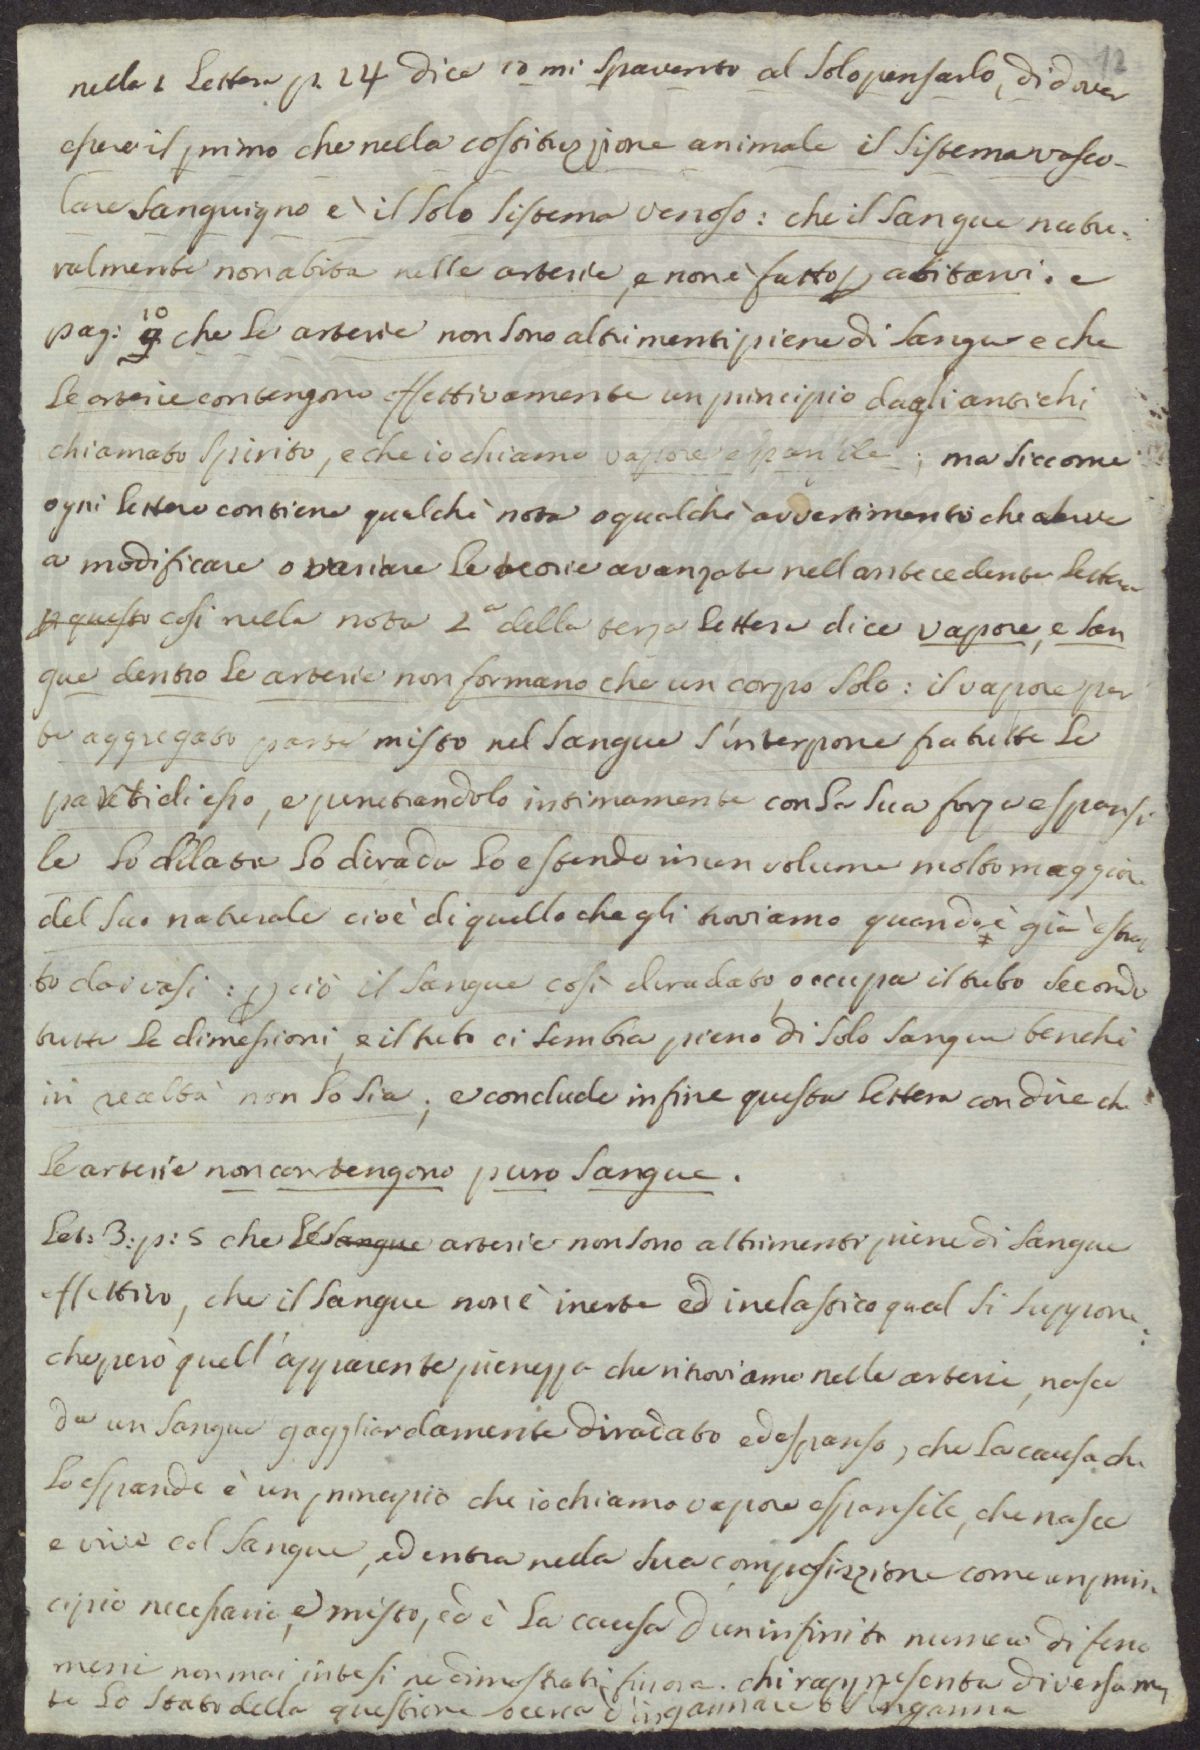 12
nella 2 Lettera p. 24 dice io mi spavento al solo pensarlo, di dover
essere il primo che nella costituzzione animale il sistema vasco-
lare sanguigno è il solo sistema venoso: che il sangue natu-
ralmente non abita nelle arterie, e non è fatto p abitarvi. e
pag: 10 che le arterie non sono altrimenti piene di sangue e che
le arterie contengono effettivamente un principio dagli antichi
chiamato spirito, e che io chiamo vapore espansile; ma siccome
ogni lettera contiene qualchè nota o qualchè avvertimento che
a modificare o variare le teorie avanzate nell antecedente lettera
p questo cosi nella nota 2a della terza lettera dice vapore, e san
gue dentro le arterie non formano che un corpo solo: il vapore par
te aggregato parte misto nel sangue s'interpone fra tutte le
parti di esso, e penetrandolo intimamente con la sua forza espansi
le lo dilata lo dirada lo estende in un volume molto maggior
del suo naturale cioè di quello che gli troviamo quando è già estrat
to dai vasi: p ciò il sangue così diradato occupa il tubo secondo
tutte le dimensioni, e il tubo ci sembra pieno di solo sangue benchè
in realtà non lo sia; e conclude infine questa lettera con dire che
le arterie non contengono puro sangue.
Let: 3: p: 5 che le sangue arterie non sono altrimenti piene di sangue
effettivo, che il sangue non è inerte ed inelastico qual si suppone:
che però quell'apparente pienezza che ritroviamo nelle arterie, nasce
da un sangue gagliardamente diradato ed espanso, che la causa che
lo espande è un principio che io chiamo vapore espansile, che nasce
e vive col sangue, ed entra nella sua composizzione come un prin
cipio necessario, e misto, ed è la causa d'un infinito numero di feno
meni non mai intesi ne dimostrati finora. chi rappresenta diversamen
te lo stato della questione o cerca d'ingannare o s'inganna